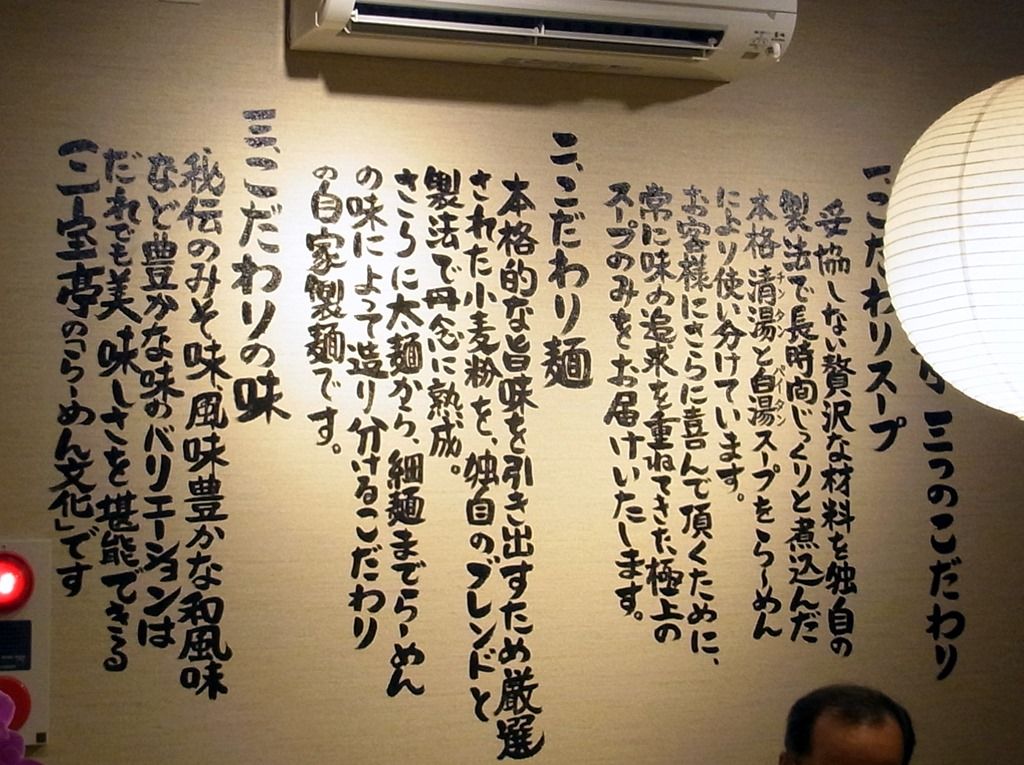 三つのこだわり
一、こだわりスープ
妥協しない贅沢な材料を独自の
製法で長時間じっくりと煮込んだ
本格清湯と白湯スープをらーめん
チンタン パイタン
により使い分けています。
お客様にさらに喜んで頂くために、
常に味の追求を重ねてきた極上の
スープのみをお届けいたします。
二、こだわり麺
本格的な旨味を引き出すため厳選
された小麦粉を、独自のブレンドと
製法で丹念に熟成。
さらに太麺から、細麺までらーめん
の味によって造り分けるこだわり
の自家製麺です。
三、こだわりの味
秘伝のみそ味、風味豊かな和風味
など豊かな味のバリエーションは
だれでも美味しさを堪能できる
「二一宝亭の「らーめん文化」です